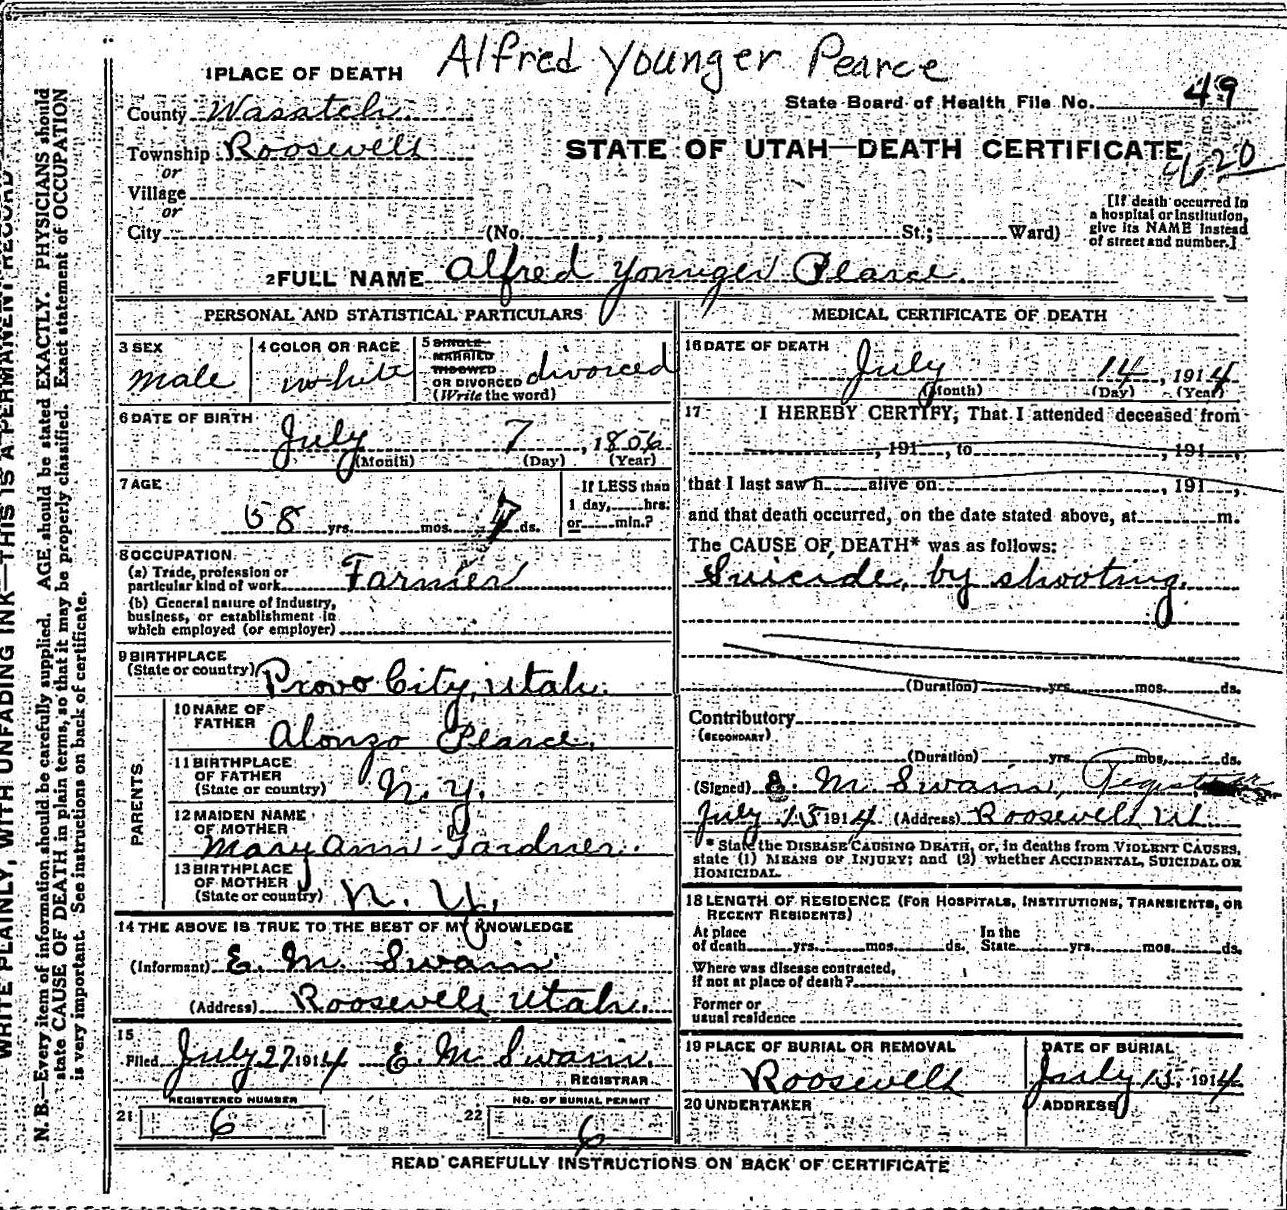 Alfred Younger Pearce
1 PLACE OF DEATH
County Wasatch
State Board of Health File No. 49
Township Roosevelt
STATE OF UTAH—DEATH CERTIFICATE
620
or
Village
or
City (No. , St.; Ward)
[If death occurred in
a hospital or institution,
give its NAME instead
of street and number.]
2 FULL NAME Alfred Younger Pearce.
PERSONAL AND STATISTICAL PARTICULARS
3 SEX
Male
4 COLOR OR RACE
white
5 SINGLE
MARRIED
WIDOWED
OR DIVORCED divorced
(Write the word)
6 DATE OF BIRTH
July 7, 1856
(Month) (Day) (Year)
7 AGE
58 yrs. mos. 7 ds.
If LESS than
1 day, hrs.
or min.?
8 OCCUPATION
(a) Trade, profession or
particular kind of work Farmer
(b) General nature of industry,
business, or establishment in
which employed (or employer)
9 BIRTHPLACE
(State or country) Provo City, Utah.
PARENTS
10 NAME OF
FATHER
Alonzo Pearce,
11 BIRTHPLACE
OF FATHER
(State or country) N. Y.
12 MAIDEN NAME
OF MOTHER
Mary Ann Gardner.
13 BIRTHPLACE
OF MOTHER
(State or country) N. Y.
14 THE ABOVE IS TRUE TO THE BEST OF MY KNOWLEDGE
(Informant) E. M. Swain
(Address) Roosevelt Utah.
15
Filed July 27 1914 E. M. Swain.
REGISTRAR
REGISTERED NUMBER
21 6
NO. OF BURIAL PERMIT
22 6
MEDICAL CERTIFICATE OF DEATH
16 DATE OF DEATH
July 14, 1914
(Month) (Day) (Year)
17 I HEREBY CERTIFY, That I attended deceased from
, 191 , to , 191 ,
that I last saw h alive on , 191 ,
and that death occurred, on the date stated above, at m.
The CAUSE OF DEATH* was as follows:
Suicide, by shooting.
(Duration) yrs. mos. ds.
Contributory
(SECONDARY)
(Duration) yrs. mos. ds.
(Signed) E. M. Swain, Registrar
July 15 1914 (Address) Roosevelt Ut.
* State the DISEASE CAUSING DEATH, or, in deaths from VIOLENT CAUSES,
state (1) MEANS OF INJURY; and (2) whether ACCIDENTAL, SUICIDAL OR
HOMICIDAL.
18 LENGTH OF RESIDENCE (FOR HOSPITALS, INSTITUTIONS, TRANSIENTS, OR
RECENT RESIDENTS)
At place In the
of death yrs. mos. ds. State yrs. mos. ds.
Where was disease contracted,
if not at place of death?
Former or
usual residence
19 PLACE OF BURIAL OR REMOVAL
Roosevelt
DATE OF BURIAL
July 15, 1914
20 UNDERTAKER
ADDRESS
READ CAREFULLY INSTRUCTIONS ON BACK OF CERTIFICATE
WRITE PLAINLY, WITH UNFADING INK—THIS IS A PERMANENT RECORD
N. B.—Every item of information should be carefully supplied. AGE should be stated EXACTLY. PHYSICIANS should
state CAUSE OF DEATH in plain terms, so that it may be properly classified. Exact statement of OCCUPATION
is very important. See instructions on back of certificate.